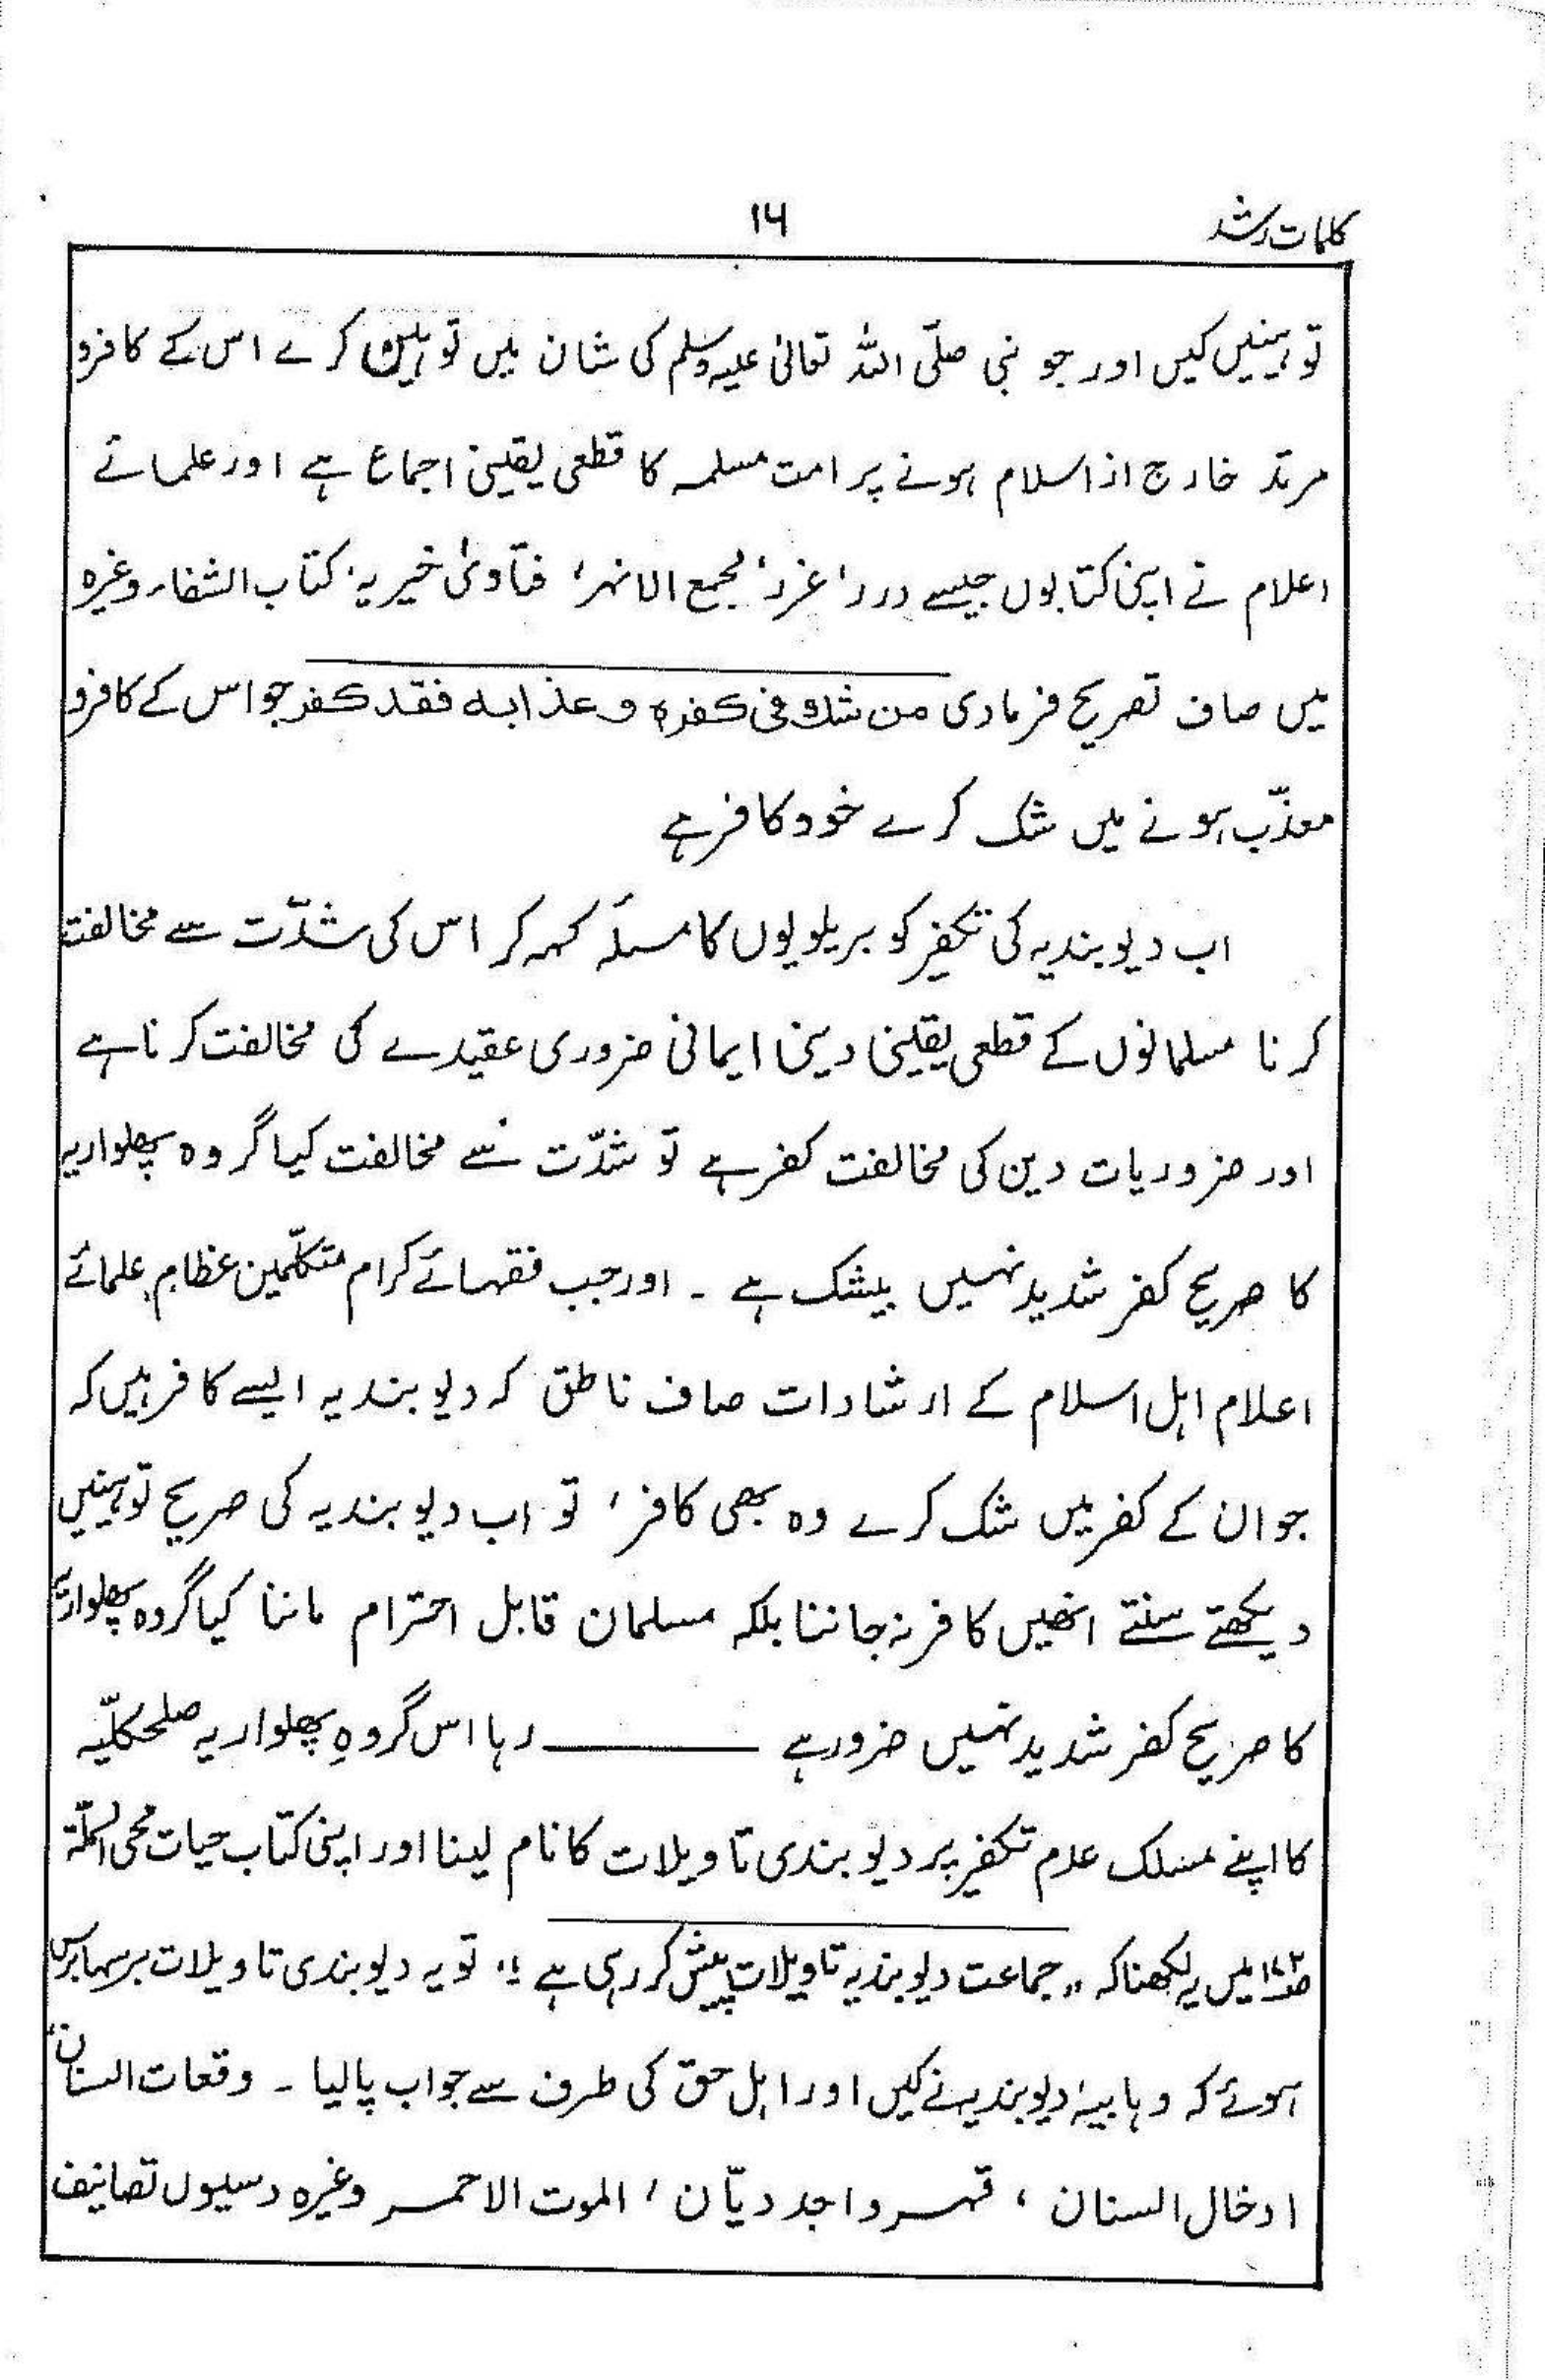 کلمات رشد
۱۶
توہینیں کیں اور جو نبی صلّی اللہ تعالیٰ علیہ وسلم کی شان میں توہین کرے اس کے کافرو
مرتد خارج از اسلام ہونے پر امت مسلمہ کا قطعی یقینی اجماع ہے اور علمائے
اعلام نے اپنی کتابوں جیسے درر، غرر، مجمع الانہر، فتاویٰ خیریہ، کتاب الشفاء وغیرہ
میں صاف تصریح فرمادی من شك فی کفرہ و عذابہ فقد کفر جو اس کے کافرو
معذّب ہونے میں شک کرے خود کافر ہے
اب دیوبندیہ کی تکفیر کو بریلویوں کا مسئلہ کہہ کر اس کی شدّت سے مخالفت
کرنا مسلمانوں کے قطعی یقینی دینی ایمانی ضروری عقیدے کی مخالفت کرنا ہے
اور ضروریات دین کی مخالفت کفر ہے تو شدّت سے مخالفت کیا گروہ پھلواریہ
کا صریح کفر شدید نہیں بیشک ہے ۔ اور جب فقہائے کرام متکلّمین عظام، علمائے
اعلام اہل اسلام کے ارشادات صاف ناطق کہ دیوبندیہ ایسے کافر ہیں کہ
جو ان کے کفر میں شک کرے وہ بھی کافر، تو اب دیوبندیہ کی صریح توہینیں
دیکھتے سنتے انھیں کافر نہ جاننا بلکہ مسلمان قابل احترام ماننا کیا گروہ پھلواریہ
کا صریح کفر شدید نہیں ضرور ہے ——— رہا اس گروہِ پھلواریہ صلحکلّیہ
کا اپنے مسلک عدم تکفیر پر دیوبندی تاویلات کا نام لینا اور اپنی کتاب حیات محی الملّۃ
میں یہ لکھنا کہ "جماعت دیوبندیہ تاویلات پیش کر رہی ہے" تو یہ دیوبندی تاویلات برسہا برس
ہوئے کہ وہابیۂ دیوبندیہ نے کیں اور اہل حق کی طرف سے جواب پالیا ۔ وقعات السنان،
ادخال السنان ، قہر واجد دیّان ، الموت الاحمر وغیرہ دسیوں تصانیف